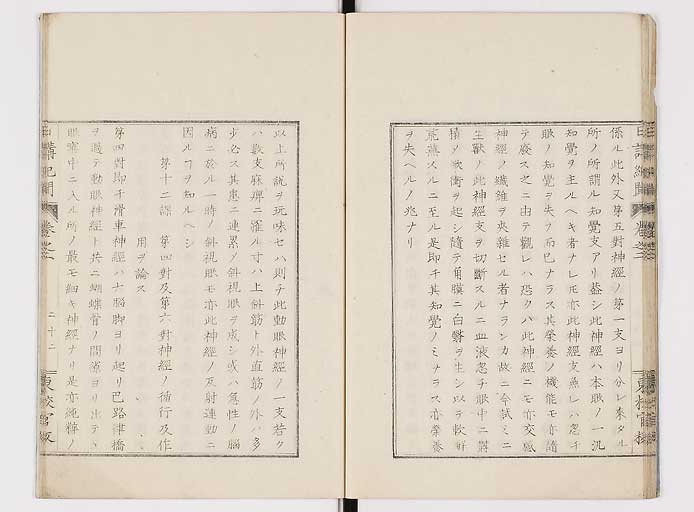 係ル此外又第五對神經ノ第一支ヨリ分レ來タル
所ノ所謂ル知覺支アリ葢シ此神經ハ本眼ノ一汎
知覺ヲ主ルヘキ者ナレモ亦此神經支無レハ忽チ
眼ノ知覺ヲ失フ而已ナラス其榮養ノ機能モ亦隨
テ廢ス之ニ由テ觀レハ恐クハ此神經ニモ亦交感
神經ノ纖維ヲ夾雜セル者ナランカ故ニ今試ミニ
生獸ノ此神經支ヲ切斷スルニ血液忽チ眼中ニ
積ノ衝ヲ起シ隨テ角膜ニ白翳ヲ生シ以テ軟
スルニ至ル是即チ其知覺ノミナラス亦榮養
ヲ失ヘルノ兆ナリ
以上所說ヲ玩味セハ則チ此動眼神經ノ一支若ク
ハ數支麻痺ニ罹ル寸ハ上斜筋ト外直筋ノ外ハ多
少必ス其患ニ連累ノ斜視眼ヲ成シ或ハ急性ノ腦
病ニ於ル一時ノ斜視眼モ亦此神經ノ反射運動ニ
因ルヿヲ知ルヘシ
第十二課 第四對及第六對神經ノ循行及作
用ヲ論ス
第四對即チ滑車神經ハ大腦脚ヨリ起リ巴路律橋
ヲ過テ動眼神經ト共ニ蝴蝶骨ノ間ヨリ出テヽ
眼窠中ニ入ル所ノ最モ細キ神經ナリ是亦純粹ノ
日講紀聞 卷之二 二十二